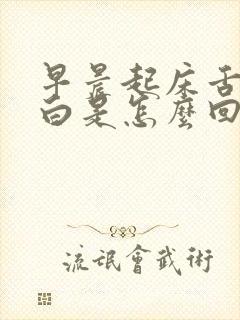 早晨起床舌
白是怎麼回
流氓會武術